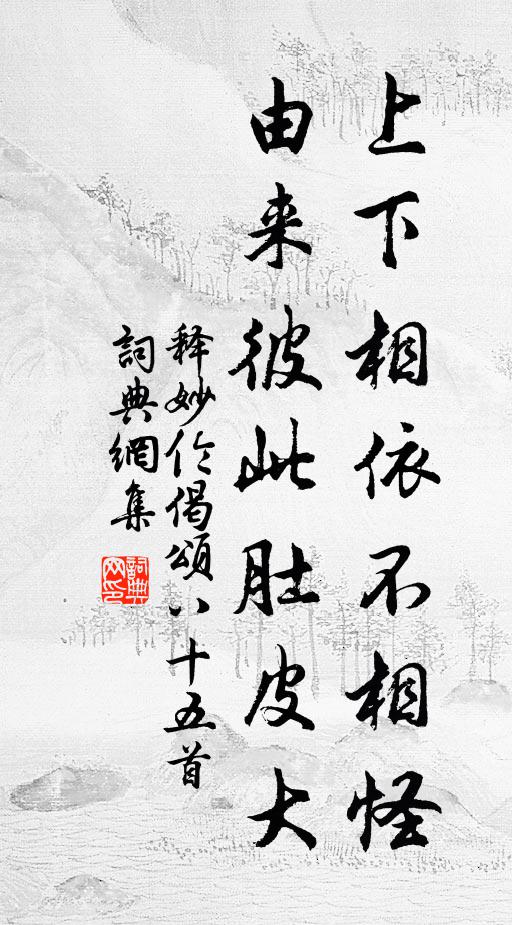 上下相依不相怪
由来彼此肚皮大
释妙伦偈颂八十五首
詞典網集
詞典网印